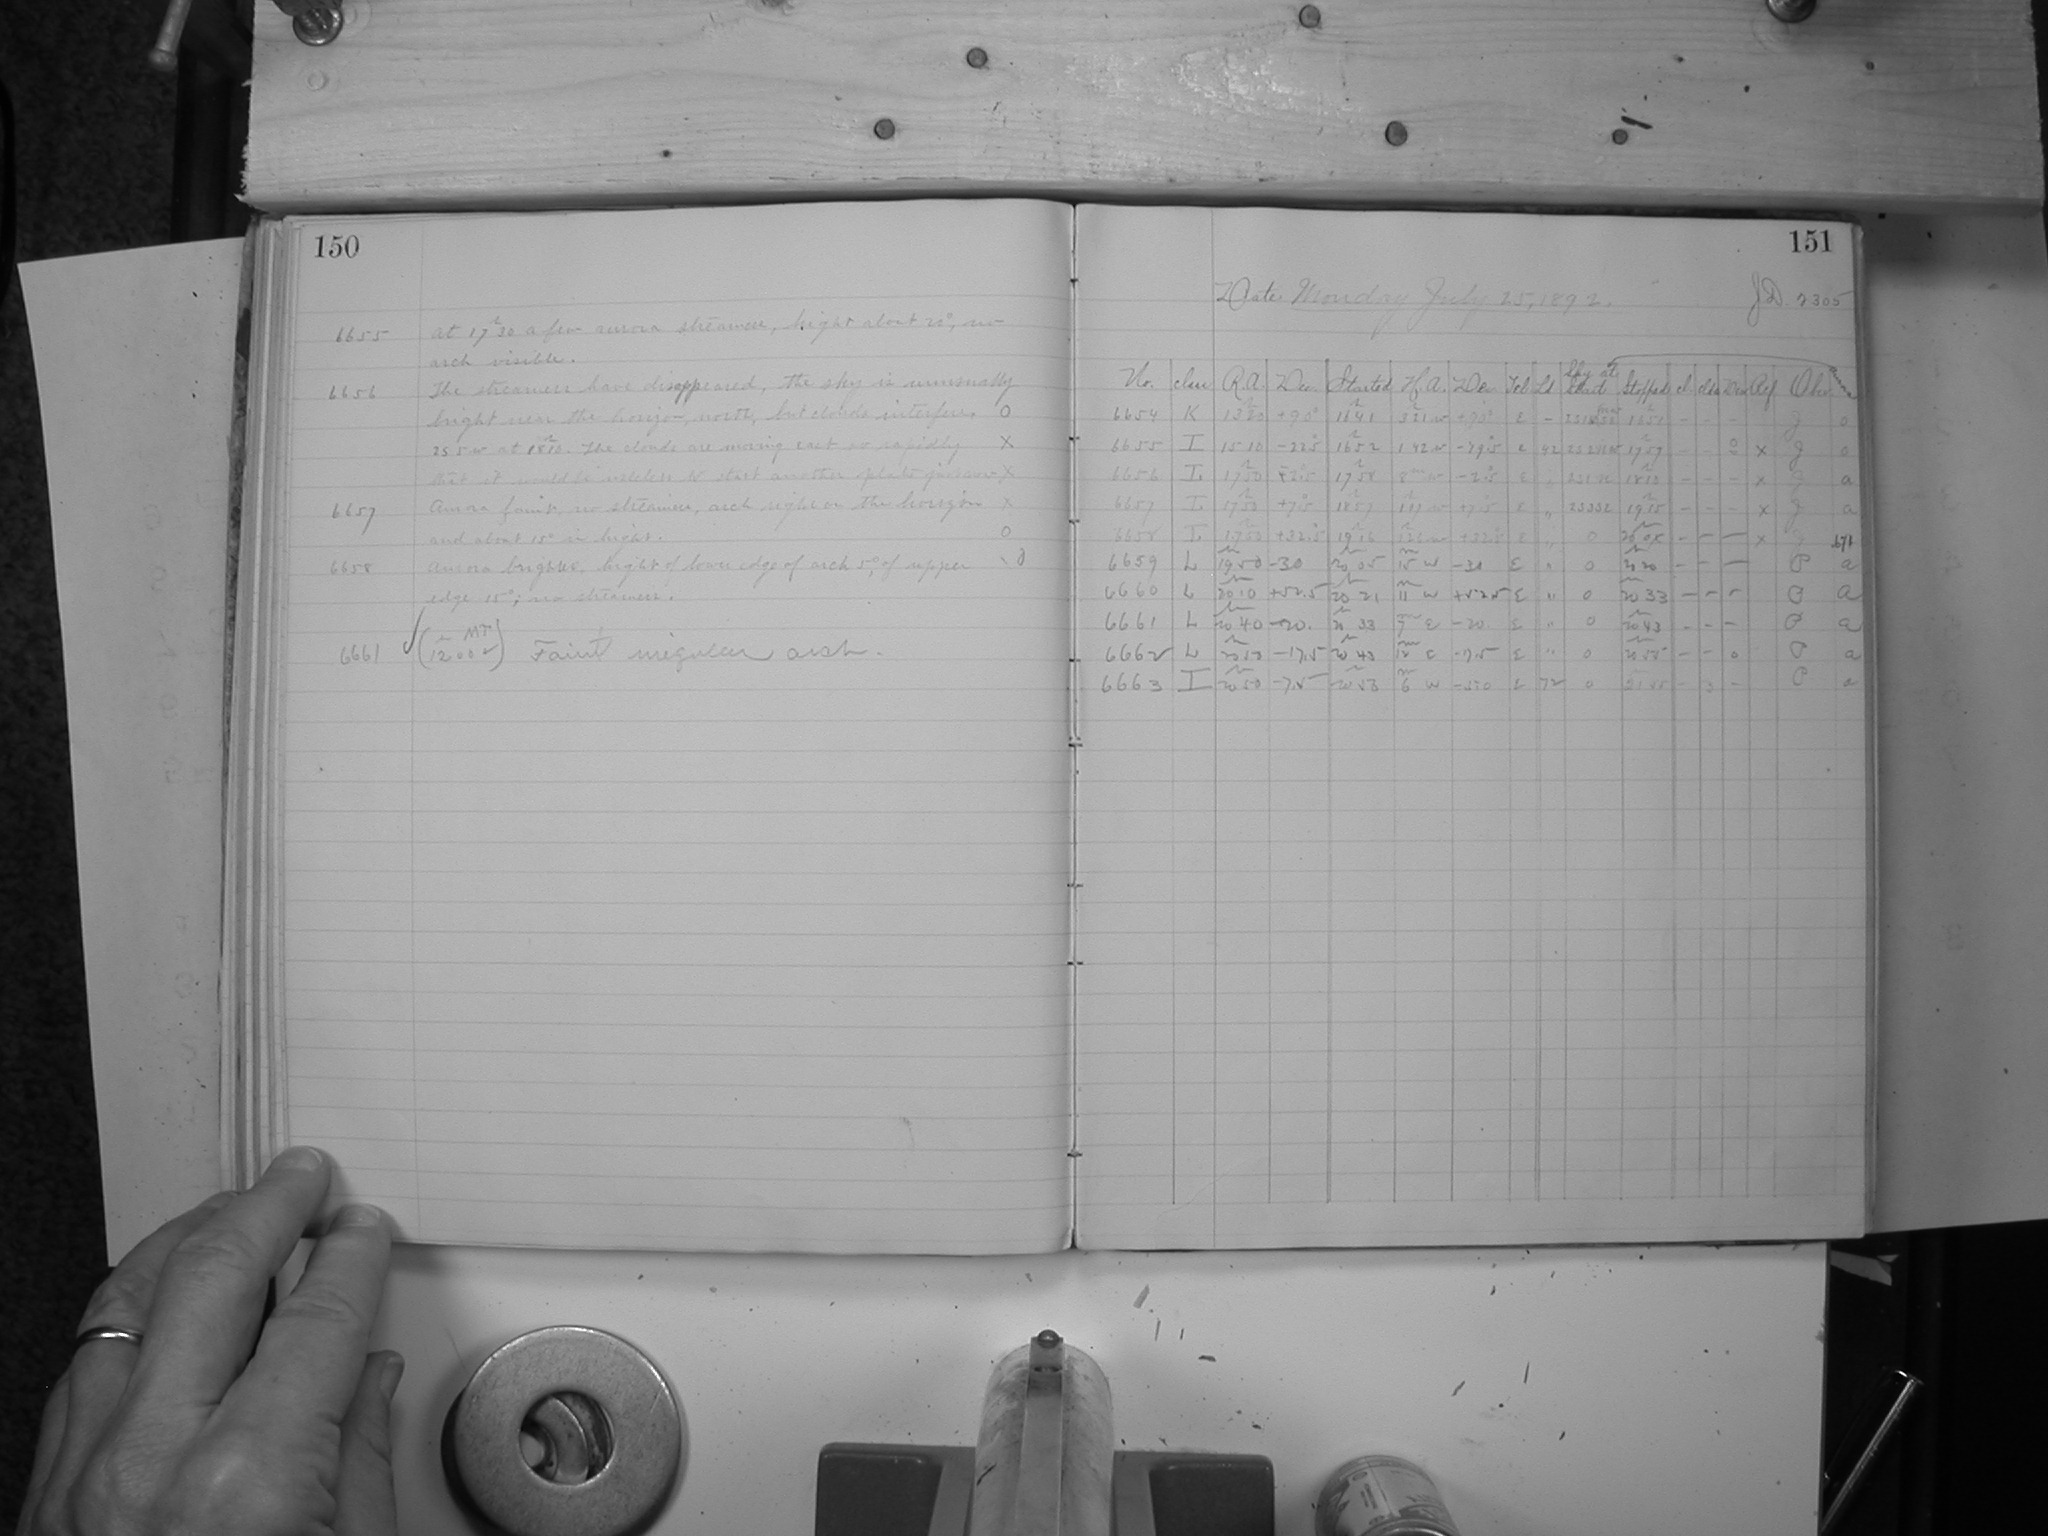 150
6655 At 17h30 a few aurora streamers, hight about 20°, no
arch visible.
6656 The streamers have disappeared, the sky is unusually
bright near the horizon, north, but clouds interfere, O
25 5 w at 18h10. The clouds are moving east so rapidly X
that it would be useless to start another plate X
6657 Aurora faint, no streamers, arch right on the horizon X
and about 15° in hight. O
6658 Aurora brighter, hight of lower edge of arch 5°, of upper
edge 15°; no streamers.
6661 (12h00 MT) Faint irregular arch.
151
Date Monday July 25, 1892. JD. 2305
No. Class R.A. Dec. Started H.A. Dec. Tel Ld Sky at Start Stopped cl. Clds Dew Ref Obs. Aurora
6654 K 13 20 +90° 16 41 3 21 w +90° E - 16 51 - - - J o
6655 I 15 10 16 52 1 42 w E 42 17 57 - - x J o
6656 I 17 50 17 58 8m w E " 18 13 - - - x J a
6657 I 17 50 +7.5 18 57 w +7.5 E " 23332 19 15 - - - x J a
6658 I 17 50 +32.5 19 16 w +32.5 E " 0 20 05 - - - x J
6659 L 19 50 -30 20 05 15 w -30 E " 0 20 20 - - - P a
6660 L 20 10 +52.5 20 21 11 w +52.5 E " 0 20 33 - - - P a
6661 L 20 40 -20. 20 33 7 E -20 E " 0 20 43 - - - P a
6662 L -17.5 20 43 12 E E " 0 20 55 - - 0 P a
6663 I 20 50 -7.5 6 w E 72 0 - 3 - P a